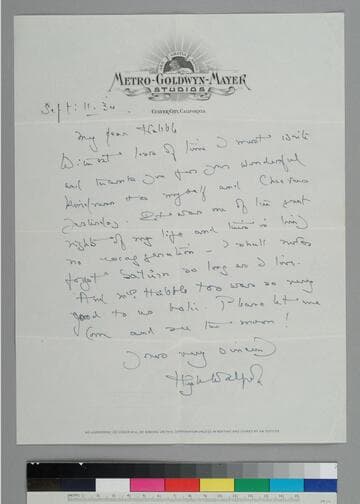 METRO-GOLDWYN-MAYER
STUDIOS
CULVER CITY, CALIFORNIA
Sept: 11. 34
My dear Hubble
Without loss of time I must write
and thank you for your wonderful
kindness to myself and Cheevers
yesterday. It was one of the great
nights of my life and this is
no exaggeration - I shall never
forget Saturn so long as I live.
And Mrs Hubble too was so very
good to us both. Please let me
come and see the moon!
Yours very sincerely
Hugh Walpole